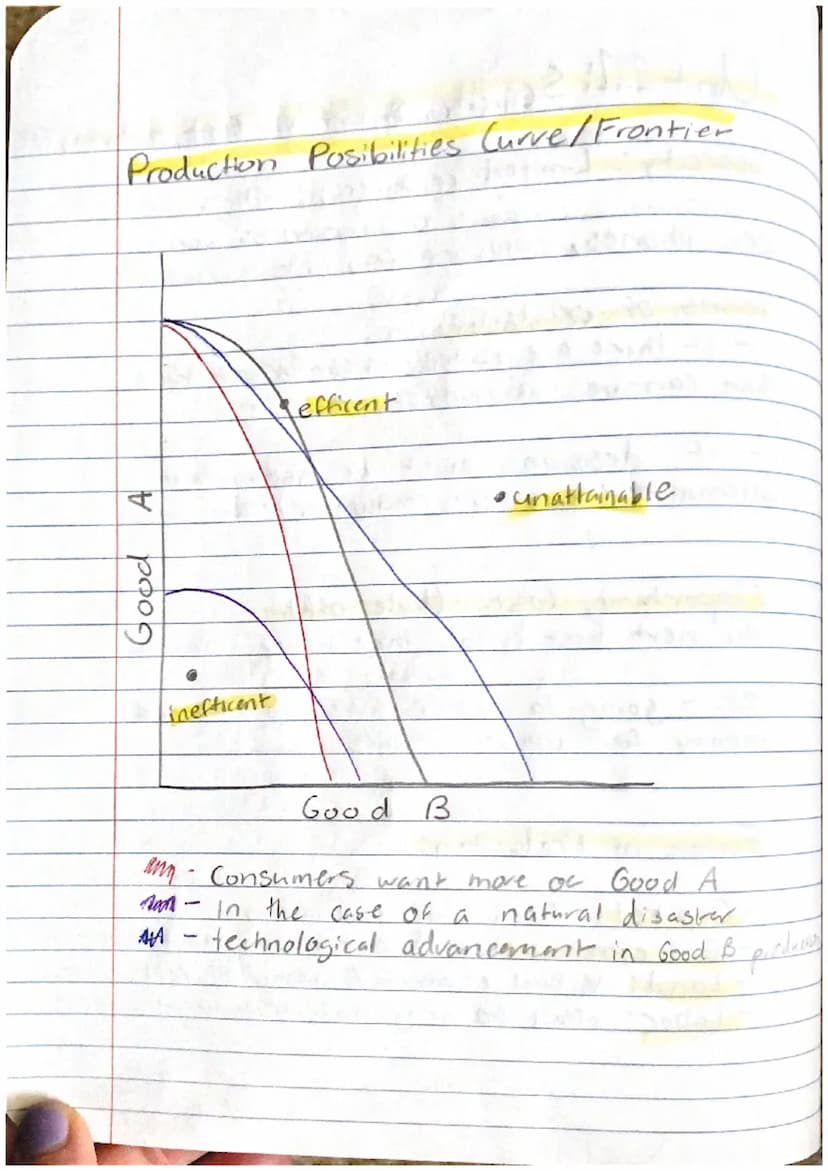 Production Posibilities Curve/Frontier
efficent
unattainable
Good A
inefficent
Good B
- Consumers want more oc Good A
- In the case of a natural disaster
- technological advancement in Good B production